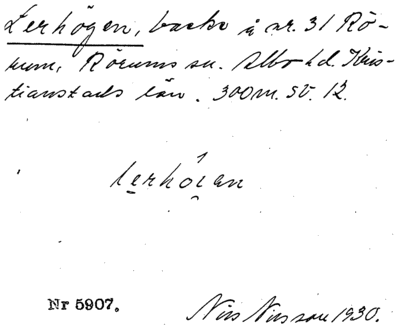 Lerhögen, backe å nr. 31 Rö-
rum, Rörums sn. Albo hd. Kris-
tianstads län. 300 m. SV. 12.
lerhö́ı̯an
Nr 5907.
Nils Nilsson 1930.